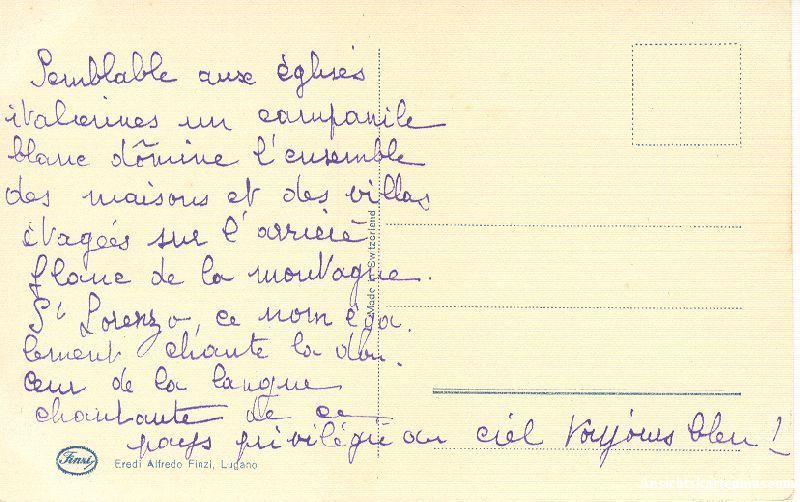 Semblable aux églises
italiennes un campanile
blanc dômine l'ensemble
des maisons et des villas
étagées sur l'arrière
flanc de la montagne.
St Lorenzo, ce nom éga.
lement chante la dou.
ceur de la langue
chantante de ce
pays privilégié au ciel toujours bleu !
Made in Switzerland
Finzi
Eredi Alfredo Finzi, Lugano